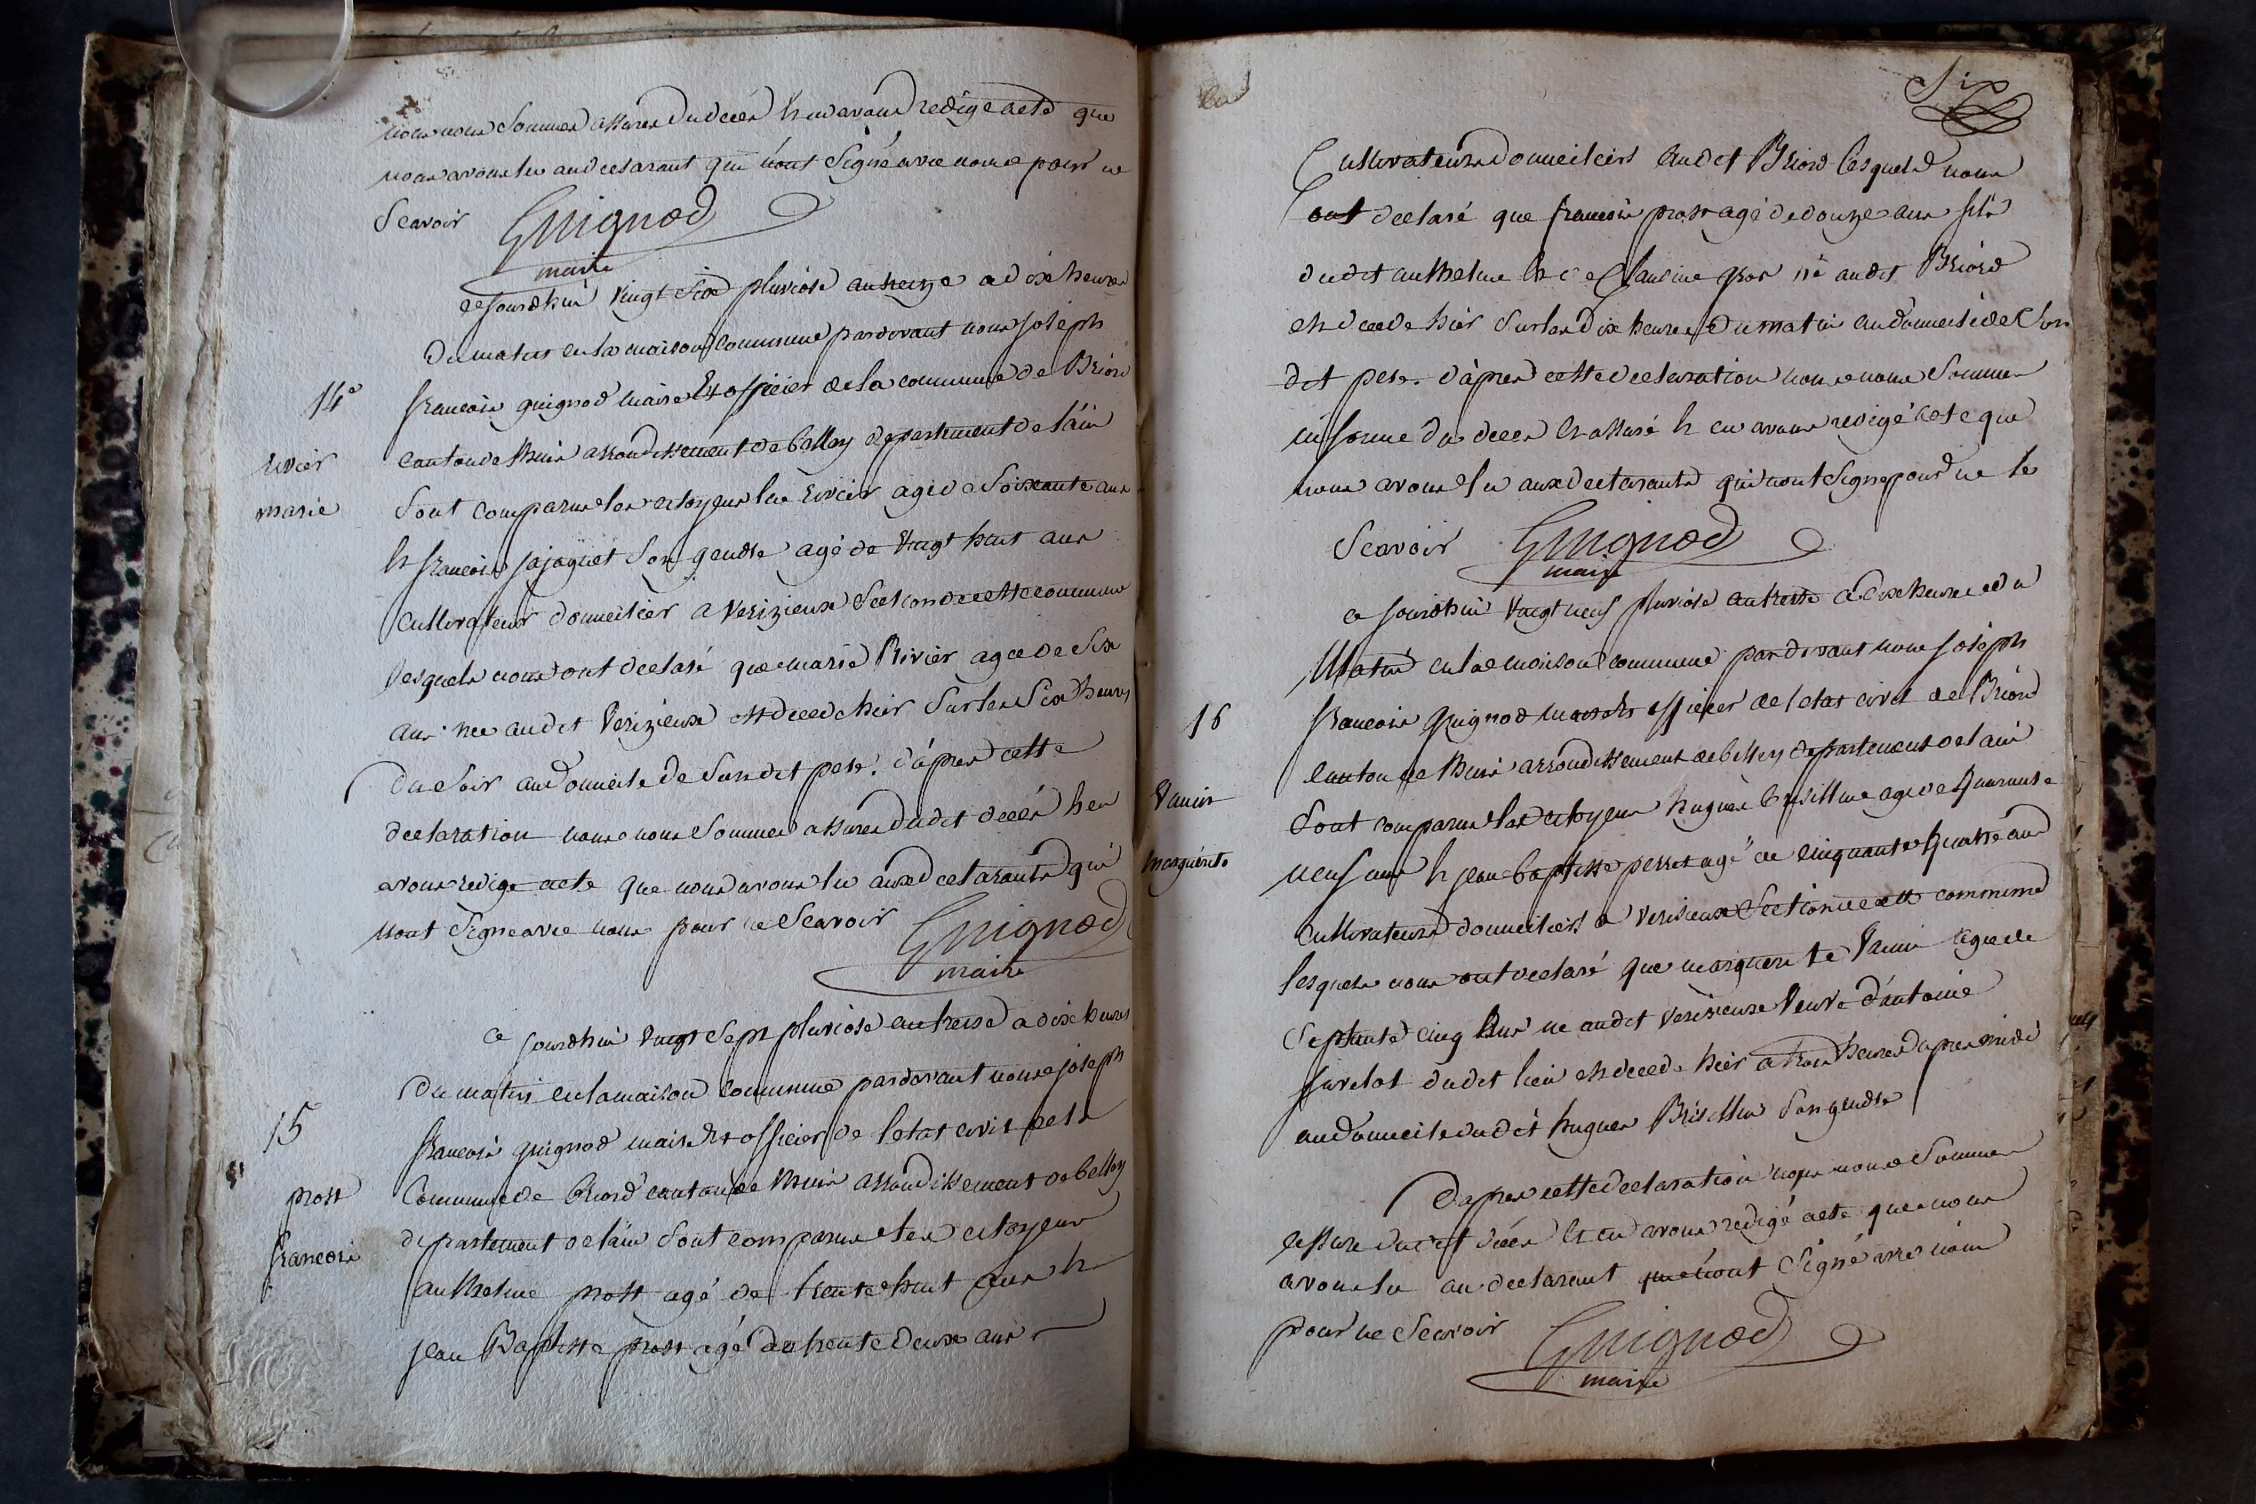 nous nous sommes assures du décés & en avons redige acte que
nous avons lu au declarant qui n'ont signé avec nous pour ne
scavoir Guignod
maire
ce jourdhui vingt six pluviose an treize a dix heures
du matin en la maison commune pardevant nous joseph
14e
francois guignod maire & officier de la commune de Briord
canton de lhuis arrondissement de belley departement de l'ain
rivier
marie
sont comparus les citoyens rivier agé de soixante ans
& francois jajaquet son gendre agé de vingt huit ans
cultivateur domicilier a verizieux section de cette commune
lesquels nous ont declaré que marie Rivier agee de six
ans nee audit verizieux est decede hier sur les six heures
du soir au domicile de sondit pere. d'après cette
declaration nous nous sommes assures dudit décés & en
avons redige acte que nous avons lu aux declarants qui
n'ont signe avec nous pour ne scavoir Guignod
maire
ce jourdhui vingt sept pluviose an treize a dix heures
du matin en la maison commune pardevant nous joseph
15
francois guignod maire & officier de l'etat civil de la
prost
francois
commune de briord canton de lhuis arrondissement de belley
departement de l'ain sont comparus les citoyens
anthelme prost agé de trente huit ans &
jean Baptiste prost agé de trente deux ans
six
cultivateurs domiciliers audit Briord lesquels nous
ont declaré que francois prost agé de douze ans fils
dudit anthelme & de Claudine gros né audit Briord
est decede hier sur les dix heures du matin au domicile de son
dit pere. d'àpres cette declaration nous nous sommes
informe du decés & assuré & en avons redigé acte que
nous avons lu aux declarants qui n'ont signe pour ne le
scavoir Guignod
maire
ce jourdhui vingt neuf pluviose an treize à dix heures du
matin en la maison commune pardevant nous joseph
16
francois guignod maire & officier de letat civil de Briord
canton de lhuis arrondissement de belley departement de lain
vanin
marguerite
sont comparus les citoyens hugues brisillion agé de quarante
neuf ans & jean baptiste perret agé de cinquante quatre ans
cultivateurs domiciliers a verizieux section de cette commune
lesquels nous ont declaré que marguerite vanin agee de
septante cinq ans ne audit verizieux veuve d'antoine
juvelat dudit lieu est decede hier a trois heures apres midi
au domicile dudit hugues Brisillion son gendre
D'apres cette declaration nous nous sommes
assure dudit décés & en avons redigé acte que nous
avons lu au declarant qui n'ont signé avec nous
pour ne scavoir Guignod
maire